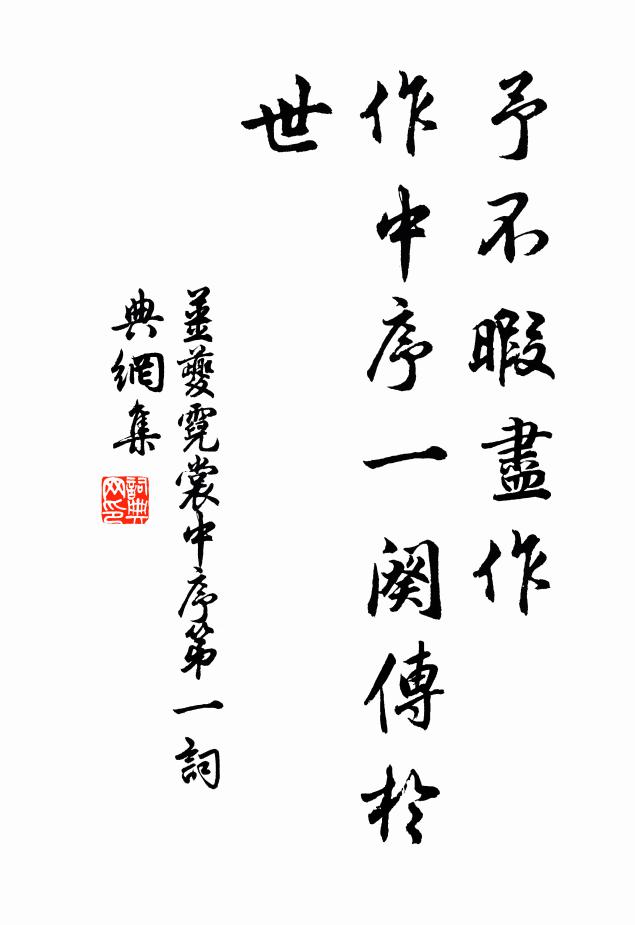 予不暇盡作
作中序一闋傳於
世
姜夔霓裳中序第一詞
典網集
詞典
网印